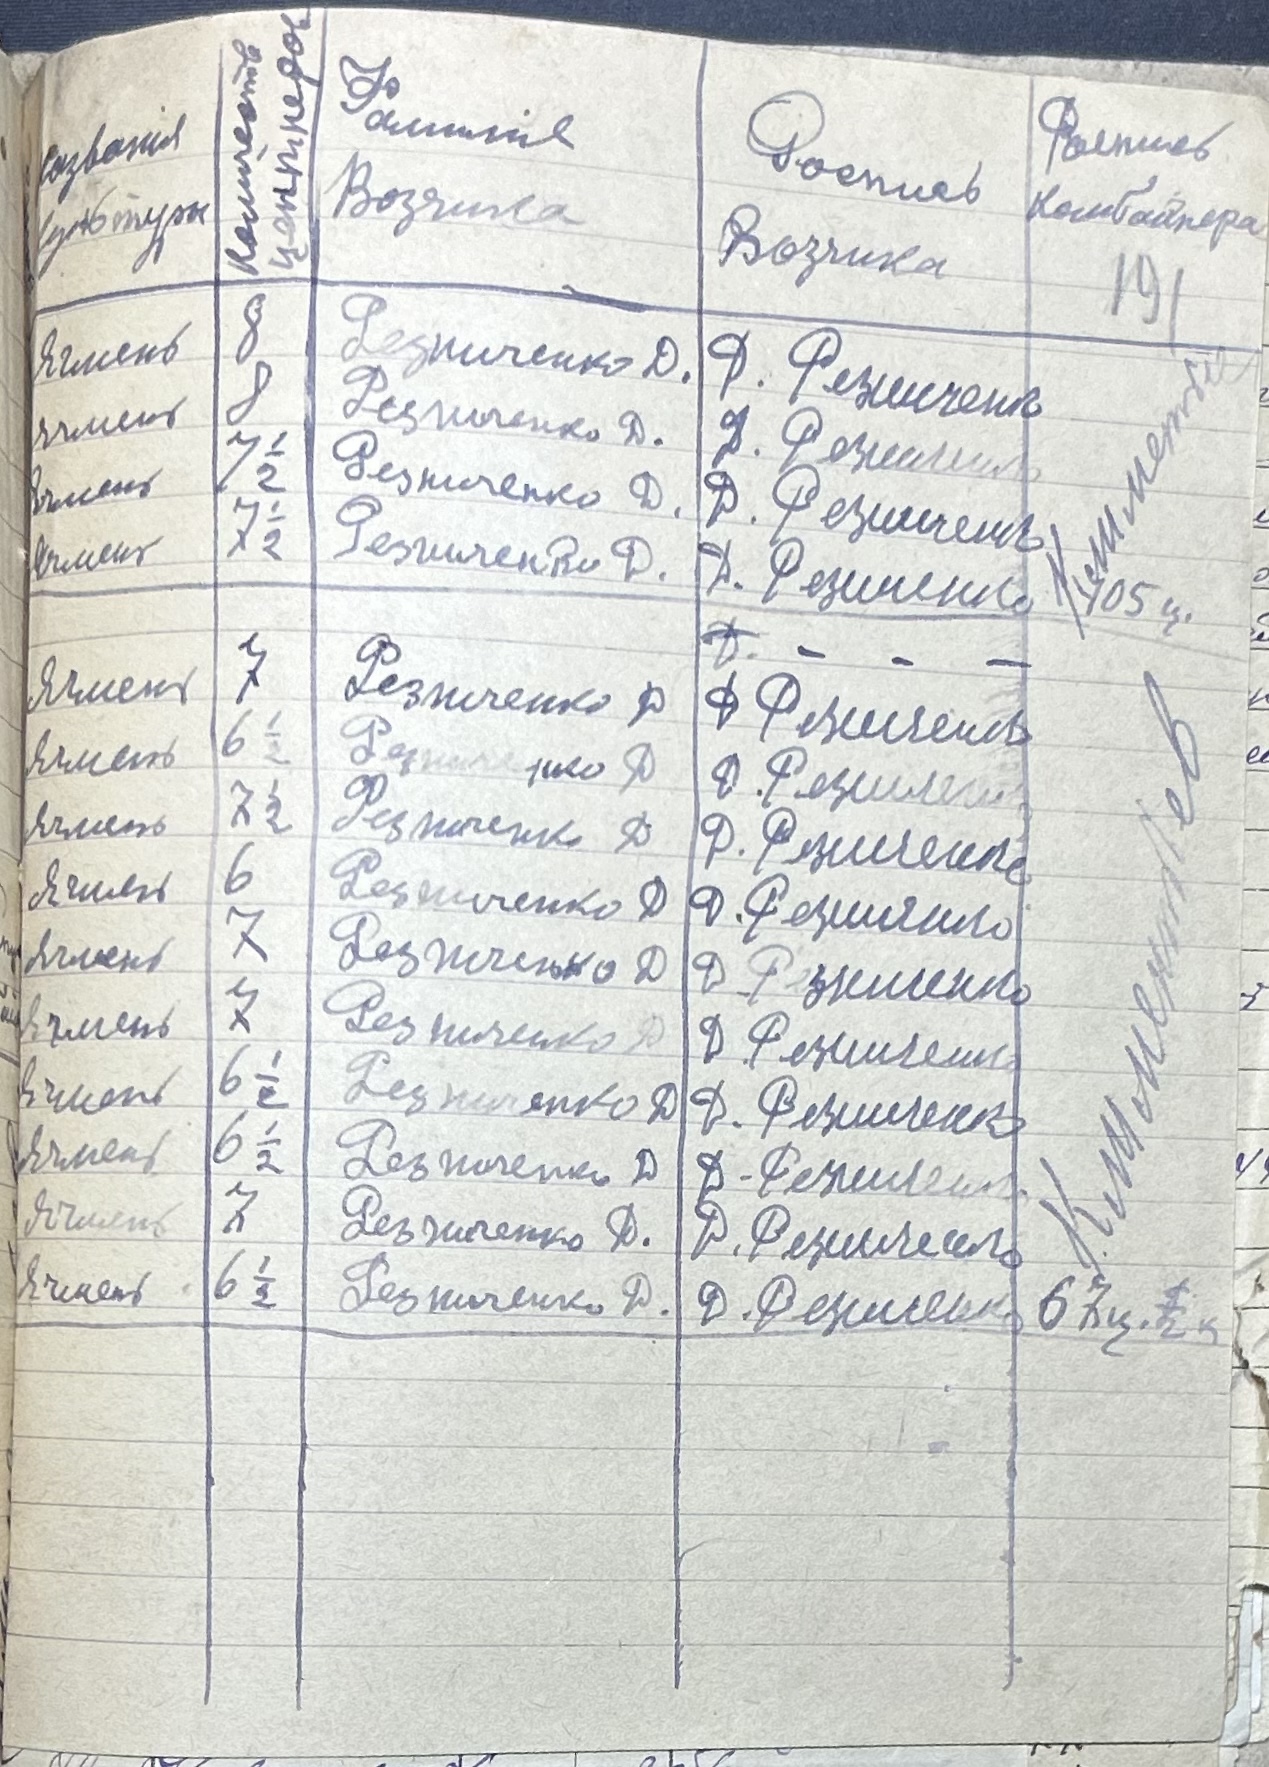 названия культуры | Количество центнеров | Фамилия Возчика | Роспись Возчика | Роспись комбайнера
191
Ячмень 8 Резниченко Д. Д. Резниченко
ячмень 8 Резниченко Д. Д. Резниченко
Ячмень 7 1/2 Резниченко Д. Д. Резниченко
Ячмень 7 1/2 Резниченко Д. Д. Резниченко 405 ц.
Д. - - -
Ячмень 7 Резниченко Д Д Резниченко
Ячмень 6 1/2 Резниченко Д Д. Резниченко
Ячмень 7 1/2 Резниченко Д Д. Резниченко
Ячмень 6 Резниченко Д Д. Резниченко
Ячмень 7 Резниченко Д Д Резниченко
Ячмень 7 Резниченко Д Д Резниченко
Ячмень 6 1/2 Резниченко Д Д. Резниченко
Ячмень 6 1/2 Резниченко Д Д - Резниченко
Ячмень 7 Резниченко Д. Д. Резниченко
Ячмень 6 1/2 Резниченко Д. Д. Резниченко 67 ц. 1/2 ц